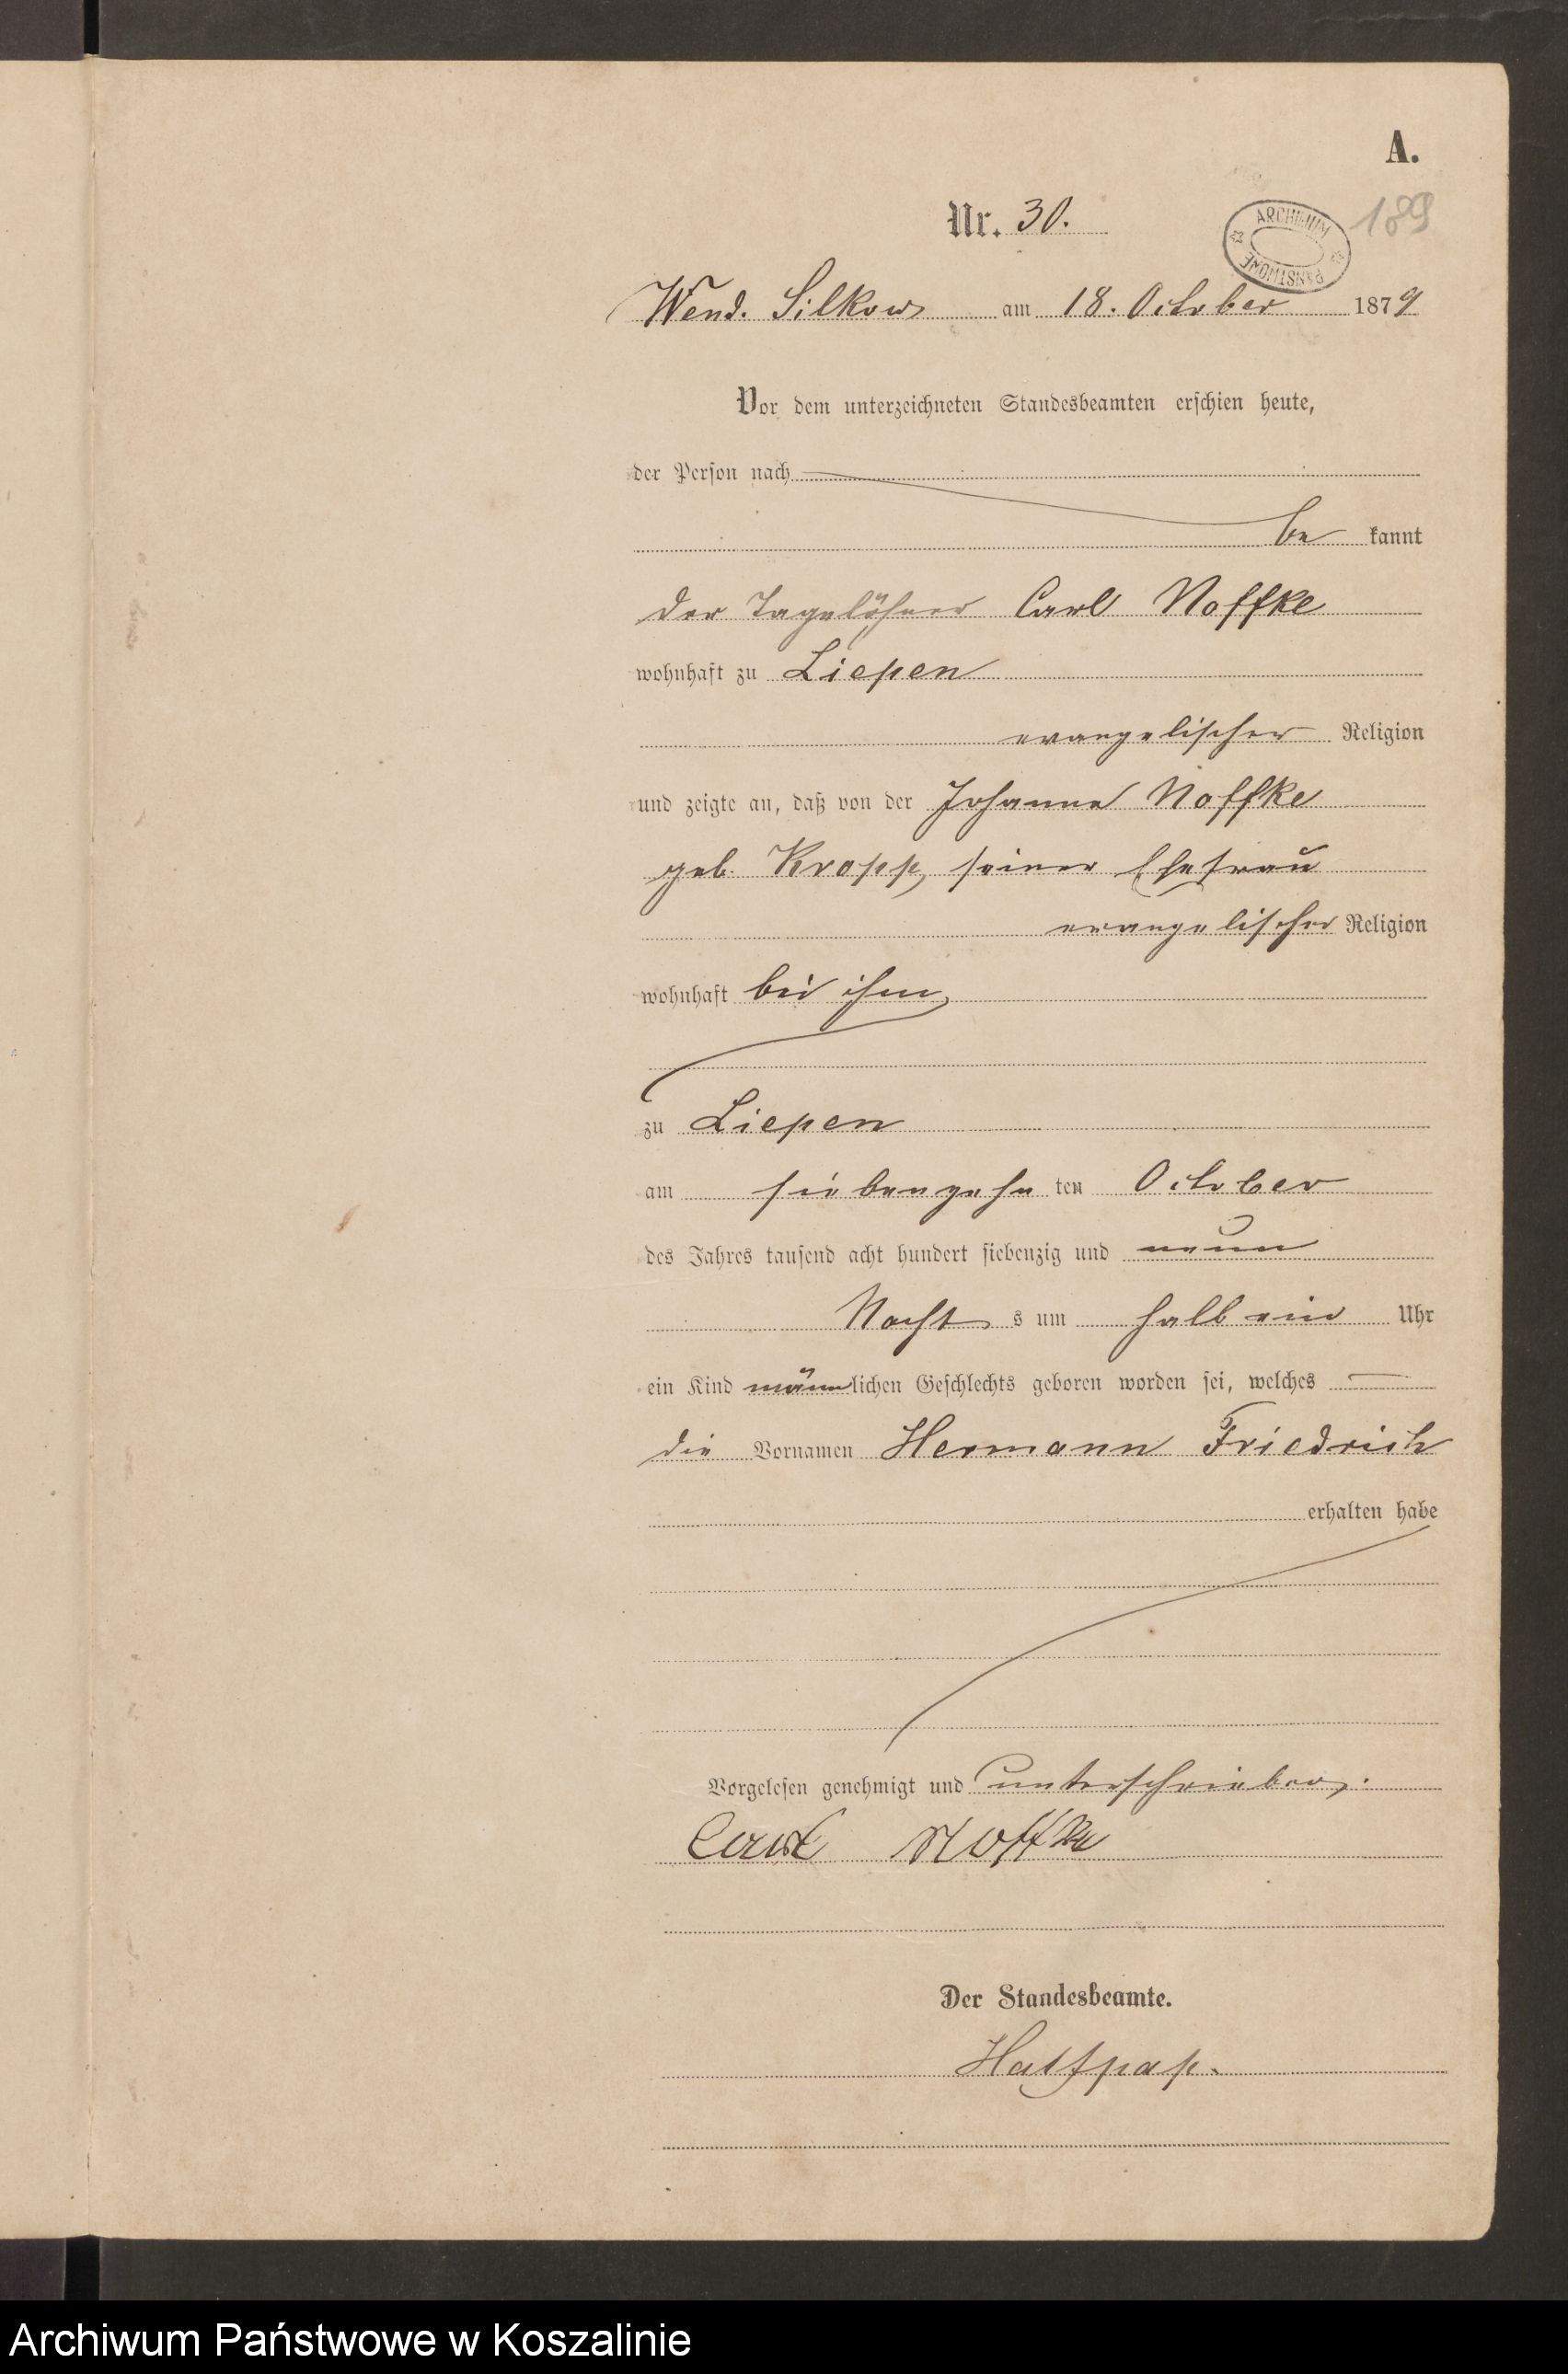 A.
Nr. 30.
ARCHIWUM PAŃSTWOWE
189
Wend. Silkow am 18. October 1879
Vor dem unterzeichneten Standesbeamten erschien heute,
der Person nach
be kannt
der Tagelöhner Carl Noffke
wohnhaft zu Liepen
evangelischer Religion
und zeigte an, daß von der Johanne Noffke
geb. Kropp, seiner Ehefrau
evangelischer Religion
wohnhaft bei ihm,
zu Liepen
am siebenzehn ten October
des Jahres tausend acht hundert siebenzig und neun
Nacht s um halb ein Uhr
ein Kind männlichen Geschlechts geboren worden sei, welches —
die Vornamen Hermann Friedrich
erhalten habe
Vorgelesen genehmigt und unterschrieben.
Carl Noffke
Der Standesbeamte.
Halfpap.
Archiwum Państwowe w Koszalinie